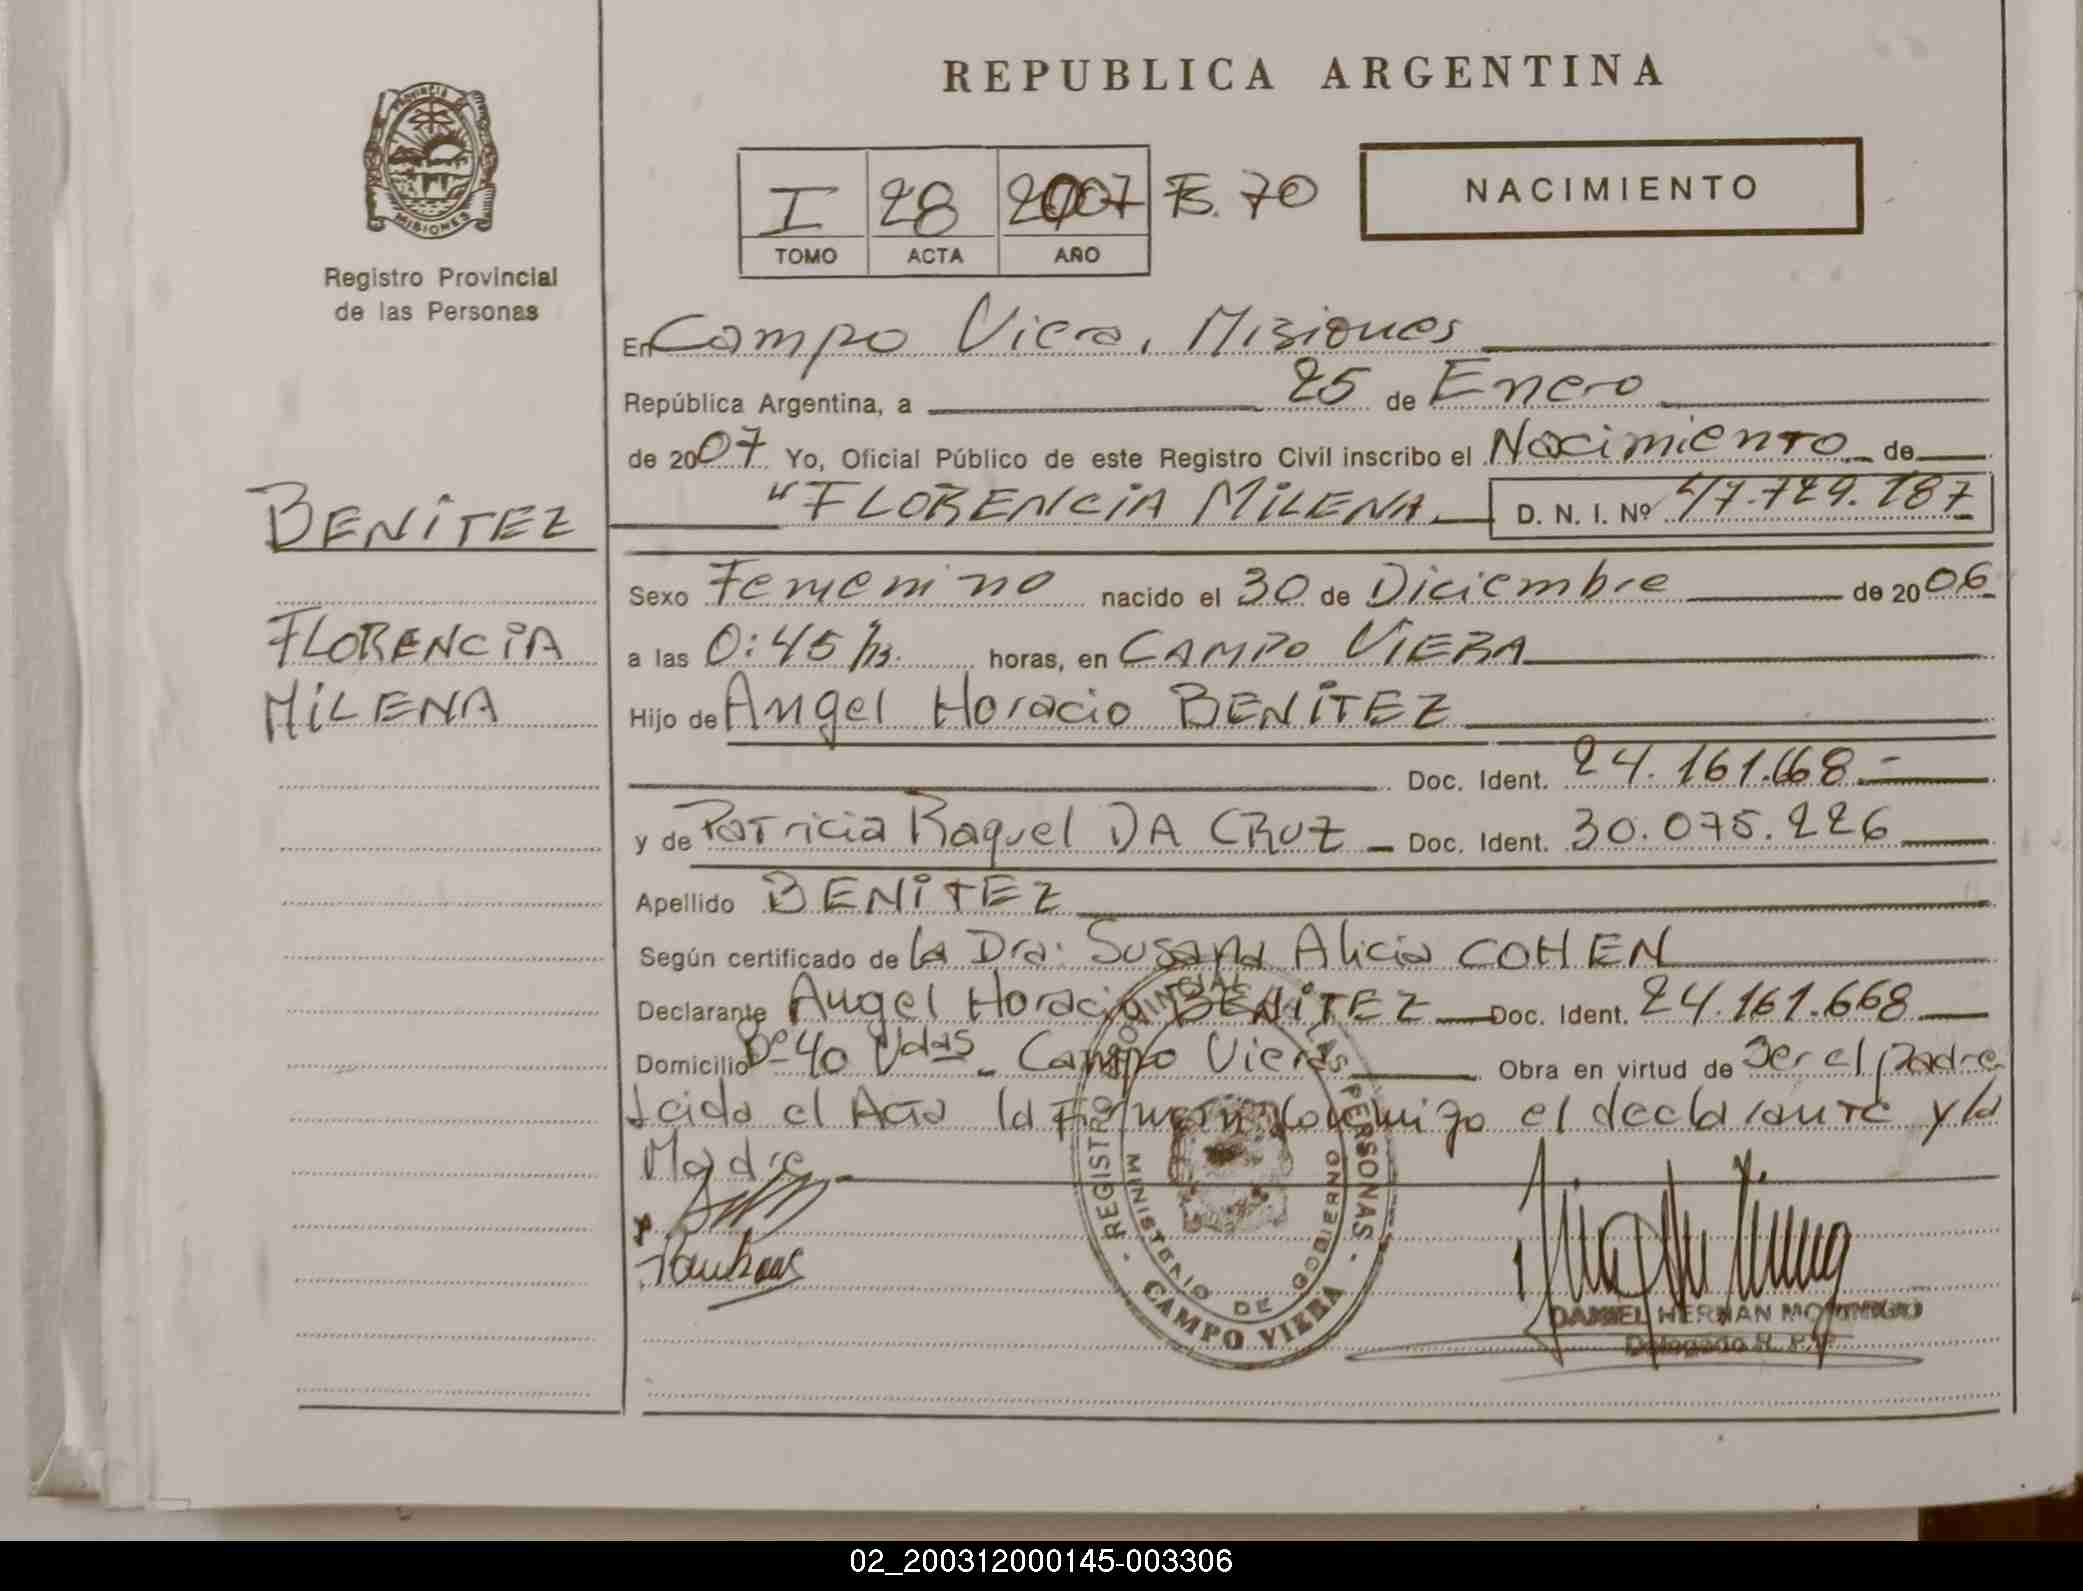 REPUBLICA ARGENTINA
PROVINCIA DE
MISIONES
Registro Provincial
de las Personas
I 28 2007 Fs. 70
TOMO ACTA AÑO
NACIMIENTO
En Campo Viera, Misiones
República Argentina, a 25 de Enero
de 2007 Yo, Oficial Público de este Registro Civil inscribo el Nacimiento de
BENITEZ
"FLORENCIA MILENA D. N. I. Nº 47.729.187
Sexo Femenino nacido el 30 de Diciembre de 2006
FLORENCIA
MILENA
a las 0:45 hs. horas, en CAMPO VIERA
Hijo de Angel Horacio BENITEZ
Doc. Ident. 24.161.668.-
y de Patricia Raquel DA CRUZ - Doc. Ident. 30.075.226
Apellido BENITEZ
Según certificado de la Dra: Susana Alicia COHEN
Declarante Angel Horacio BENITEZ Doc. Ident. 24.161.668
Domicilio Bº 40 Vdas - Campo Viera Obra en virtud de Ser el padre
Leida el Acta la Firman Conmigo el declarante y la
Madre
REGISTRO PROVINCIAL LAS PERSONAS
MINISTERIO DE GOBIERNO
CAMPO VIERA
DANIEL HERNAN
Delegado R. P. P.
02_200312000145-003306